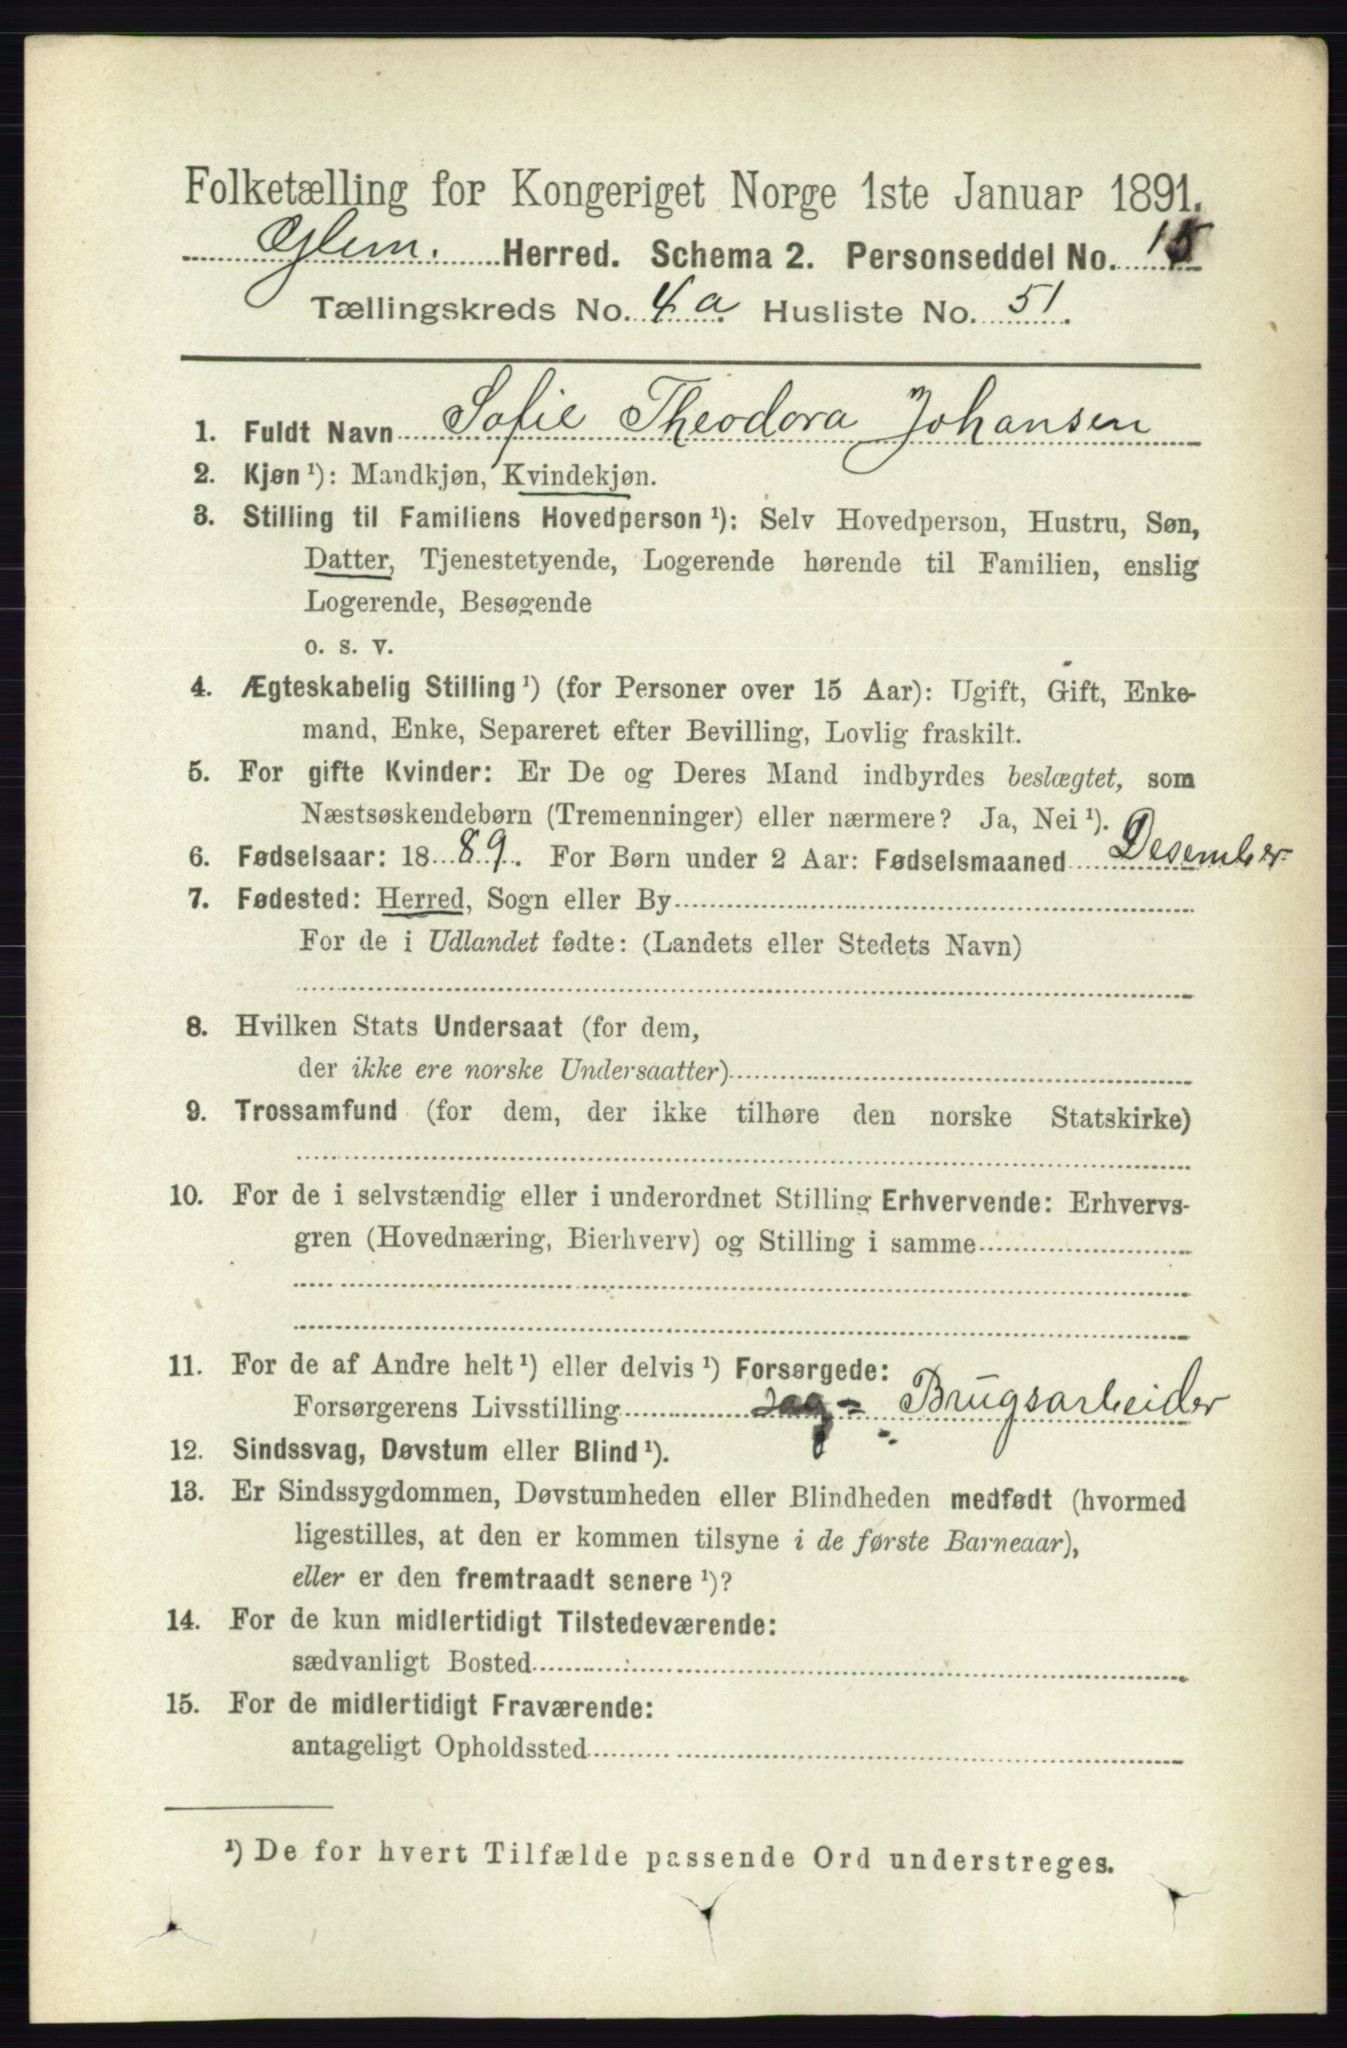 Folketælling for Kongeriget Norge 1ste Januar 1891.
Glem. Herred. Schema 2. Personseddel No. 15
Tællingskreds No. 4 a. Husliste No. 51.
1. Fuldt Navn Sofie Theodora Johansen
2. Kjøn ¹): Mandkjøn, Kvindekjøn.
3. Stilling til Familiens Hovedperson ¹): Selv Hovedperson, Hustru, Søn,
Datter, Tjenestetyende, Logerende hørende til Familien, enslig
Logerende, Besøgende
o. s. v.
4. Ægteskabelig Stilling ¹) (for Personer over 15 Aar): Ugift, Gift, Enke-
mand, Enke, Separeret efter Bevilling, Lovlig fraskilt.
5. For gifte Kvinder: Er De og Deres Mand indbyrdes beslægtet, som
Næstsøskendebørn (Tremenninger) eller nærmere? Ja, Nei ¹).
6. Fødselsaar: 1889. For Børn under 2 Aar: Fødselsmaaned Desember
7. Fødested: Herred, Sogn eller By
For de i Udlandet fødte: (Landets eller Stedets Navn)
8. Hvilken Stats Undersaat (for dem,
der ikke ere norske Undersaatter)
9. Trossamfund (for dem, der ikke tilhøre den norske Statskirke)
10. For de i selvstændig eller i underordnet Stilling Erhvervende: Erhvervs-
gren (Hovednæring, Bierhverv) og Stilling i samme
11. For de af Andre helt ¹) eller delvis ¹) Forsørgede:
Forsørgerens Livsstilling Sag= Brugsarbeider
12. Sindssvag, Døvstum eller Blind ¹).
13. Er Sindssygdommen, Døvstumheden eller Blindheden medfødt (hvormed
ligestilles, at den er kommen tilsyne i de første Barneaar),
eller er den fremtraadt senere ¹)?
14. For de kun midlertidigt Tilstedeværende:
sædvanligt Bosted
15. For de midlertidigt Fraværende:
antageligt Opholdssted
¹) De for hvert Tilfælde passende Ord understreges.